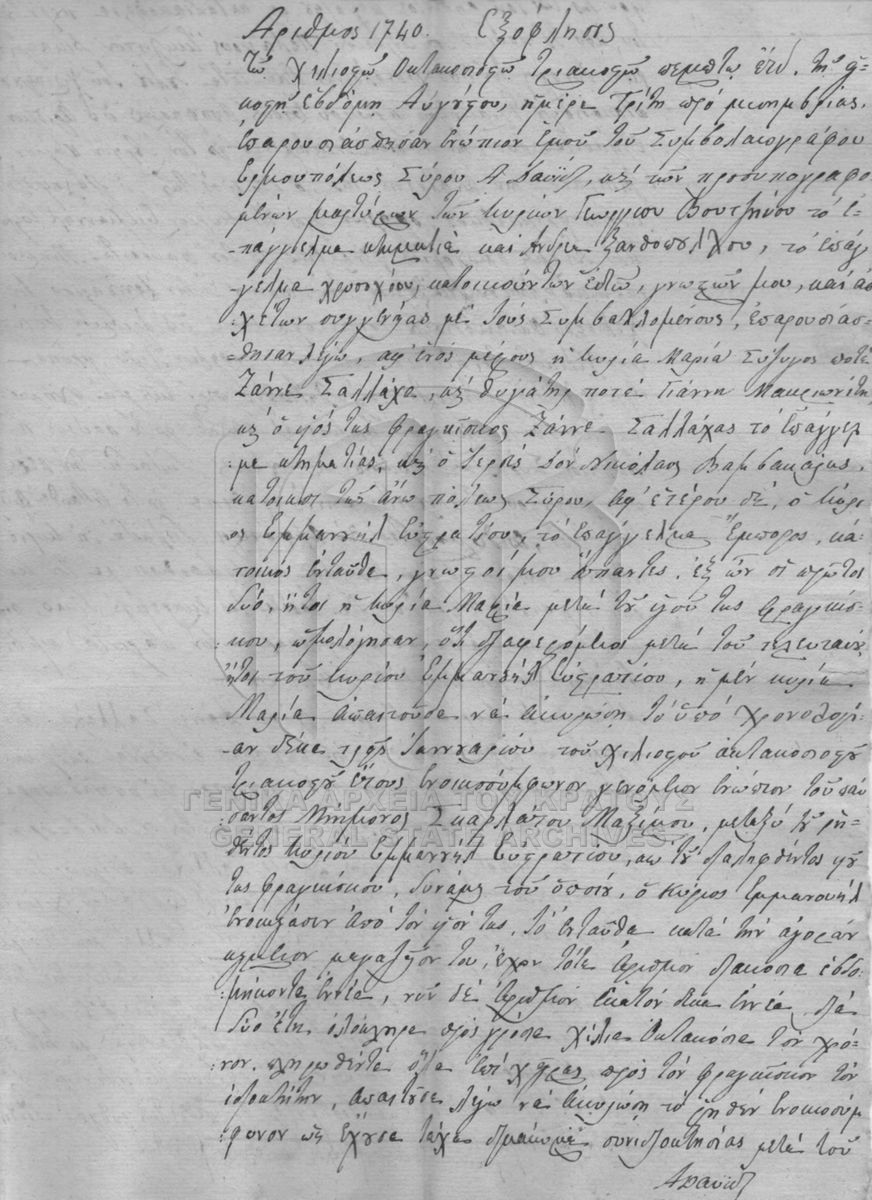 Αριθμος 1740. Εξόφλησις
Τῷ χιλιοςῷ Οκτακοσιοςῷ τριακοςῷ πεμπτῳ ἔτει, τῇ εἰ-
κοςῇ εβδόμῃ Αὐγούςου, ἡμέρᾳ Τρίτῃ πρό μεσημβρίας,
ἐπαρουσιάσθησαν ἐνώπιον ἐμοῦ τοῦ Συμβολαιογράφου
Ερμουπόλεως Σύρου Α Δαυίδ, καὶ τῶν προσυπογραφο
μένων μαρτύρων τῶν κυρίων Γεωργίου Βουτζίνου τὸ ἐ-
-πάγγελμα κτηματία και Ανδρέα Ξανθοπούλου, τὸ ἐπάγ
γελμα χρυσοχόου, κατοικούντων ἐδῶ, γνωςῶν μου, και ἀσ
χέτων συγγενείας μὲ τους Συμβαλλομένους, ἐπαρουσιάσ-
-θησαν λέγω, αφ' ἑνός μέρους ἡ κυρία Μαρία Σύζυγος ποτέ
Ζάννε Σαλλάχα, καὶ θυγάτηρ ποτέ Γιάννη Μακρυωνίτη,
καὶ ὁ υἱός της φραγκίσκος Ζάννε Σαλλάχας τὸ ἐπάγγελ
:μα κτηματίας, καὶ ὁ Ἱερεύς Δόν Νικόλαος Βαμβακάρης,
κάτοικοι τῆς Ἄνω πόλεως Σύρου, αφ' ἑτέρου δέ, ὁ κύρι
ος Εμμανουήλ Εὐςρατίου, τὸ ἐπάγγελμα Ἔμπορος, κά-
τοικος ἐνταῦθα, γνωςοί μου ἅπαντες, ἐξ ὧν οἱ πρῶτοι
δύο, ἤτοι ἡ κυρία Μαρία μετά τοῦ υἱοῦ της φραγκίσ-
:κου, ὡμολόγησαν, ὅτι διαφερόμενοι μετά τοῦ τελευταίου
ἤτοι τοῦ κυρίου Εμμανουήλ Εὐςρατίου, ἡ μέν κυρία
Μαρία ἀπαιτοῦσα νά ἀκυρώσῃ τὸ ὑπό χρονολογί-
-αν δέκα τρεῖς Ἰαννουαρίου τοῦ χιλιοςοῦ ὀκτακοσιοςοῦ
τριακοςοῦ ἔτους ἐνοικοσύμφωνον γενόμενον ἐνώπιον τοῦ παύ
σαντος Μνήμονος Σκαρλάτου Μαξίμου, μεταξύ τοῦ ῥη-
θέντος κυρίου Εμμανουήλ Εὐςρατίου, και τοῦ διαληφθέντος υἱοῦ
της φραγκίσκου, δυνάμει τοῦ ὁποίου, ὁ Κύριος Εμμανουήλ
ἐνοικίασεν ἀπὸ τὸν υἱόν της, τὸ ἐνταῦθα κατά τὴν ἀγοράν
κείμενον μαγαζεῖον του, ἔχον τότε ἀριθμόν διακόσια ἑβδο-
:μήκοντα ἐννέα, νῦν δέ ἀριθμόν ἑκατόν δέκα ἐννέα διά
δύο ἔτη ὁλόκληρα πρός γρόσια χίλια ὀκτακόσια τὸν χρό-
:νον, πληρωθέντα ὅλα ἐπί χεῖρας πρός τὸν φραγκίσκον τὸν
ἰδιοκτήτην, ἀπαιτοῦσα λέγω νά ἀκυρώσῃ τὸ ῥηθέν ἐνοικοσύμ
φωνον ὡς ἔχουσα τάχα δικαίωμα συνιδιοκτησίας μετά τοῦ
Α Δαυίδ
ΓΕΝΙΚΑ ΑΡΧΕΙΑ ΤΟΥ ΚΡΑΤΟΥΣ
GENERAL STATE ARCHIVES